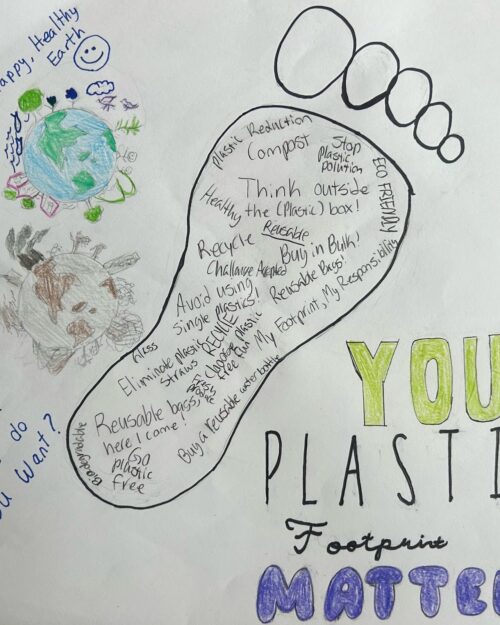 Happy, Healthy
Earth
do
Want?
Plastic Reduction
Compost
Stop
plastic
pollution
ECO FRIENDLY
Think outside
the (Plastic) box!
Healthy
Reusable
Recycle
Buy in Bulk!
Challenge Accepted
Reusable Bags!
Avoid using
single plastics!
RECYCLE!
My Footprint, My Responsibility
Glass
Eliminate plastic
straws
Choose plastic
free
Reusable bags,
here I come!
Buy a reusable waterbottle
Go
plastic
free
Biodegradable
YOU
PLASTI
Footprint
MATTE